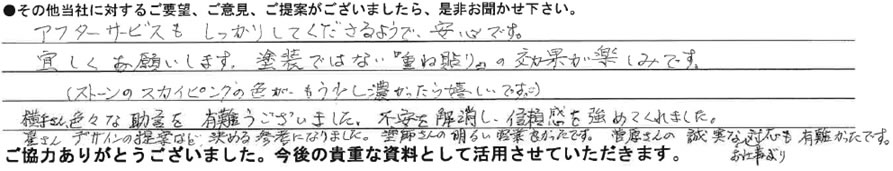 ●その他当社に対するご要望、ご意見、ご提案がございましたら、是非お聞かせ下さい。
アフターサービスも しっかりしてくださるようで、安心です。
宜しくお願いします。塗装ではない『重ね貼り』の効果が楽しみです。
(ストーンのスカイピングの色が、もう少し濃かったら嬉しいです。)
横手さん色々な助言を 有難うございました。不安を解消し、信頼感を強めてくれました。
星さん デザインの提案など 決める参考になりました。 さんの明るい営業良かったです。菅原さんの 誠実な対応も 有難かったです。
お仕事ぶり
ご協力ありがとうございました。今後の貴重な資料として活用させていただきます。